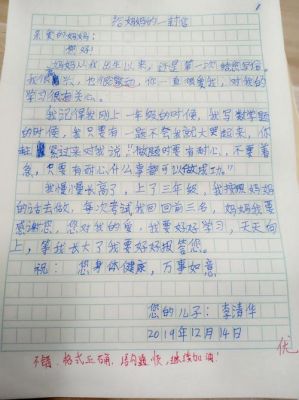 给妈妈的一封信
亲爱的妈妈:
您好!
妈妈从我出生以来,这是第一次给您写信。
我很高兴,也很激动,你一直很爱我,对我的
学习很有关心。
我记得我刚上一年级的时候,我写数学题
的时候,我只要有一题不会我就大哭起来,你
就 过来对我说:“做题时要有耐心,不要着
急,只要有耐心什么事都可以做成功。”
我慢慢长高了,上了三年级,我按照妈妈
的话去做,每次考试我回回前三名,妈妈我要
感谢您,您对我的爱,我要好好学习,天天向
上,等我长大了我要好好报答您。
祝:您身体健康,万事如意
您的儿子:李清华
2019年12月14日
优
不错,格式正确,语句通顺,继续加油!